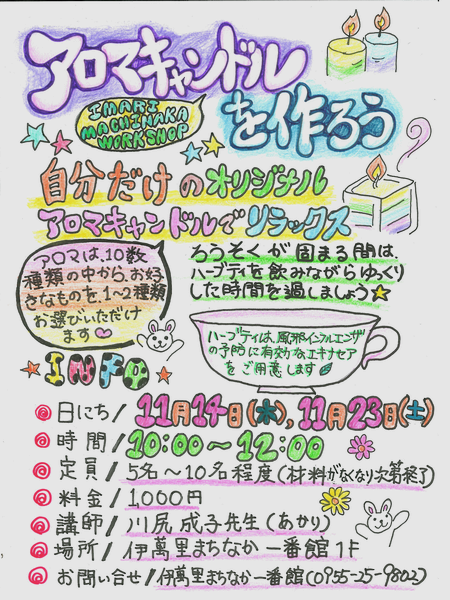 アロマキャンドル
を作ろう
IMARI
MACHINAKA
WORKSHOP
自分だけのオリジナル
アロマキャンドルでリラックス
アロマは、10数
種類の中から、お好
きなものを、1〜2種類
お選びいただけ
ます
ろうそくが固まる間は、
ハーブティを飲みながらゆっくり
した時間を過しましょう★
ハーブティは、風邪インフルエンザ
の予防に有効なエキナセア
をご用意します
★INFO★
日にち/11月14日(木),11月23日(土)
時間/10:00〜12:00
定員/5名〜10名程度(材料がなくなり次第終了)
料金/1,000円
講師/川尻成子先生(あかり)
場所/伊萬里まちなか一番館1F
お問い合せ/伊萬里まちなか一番館(0955-25-9802)